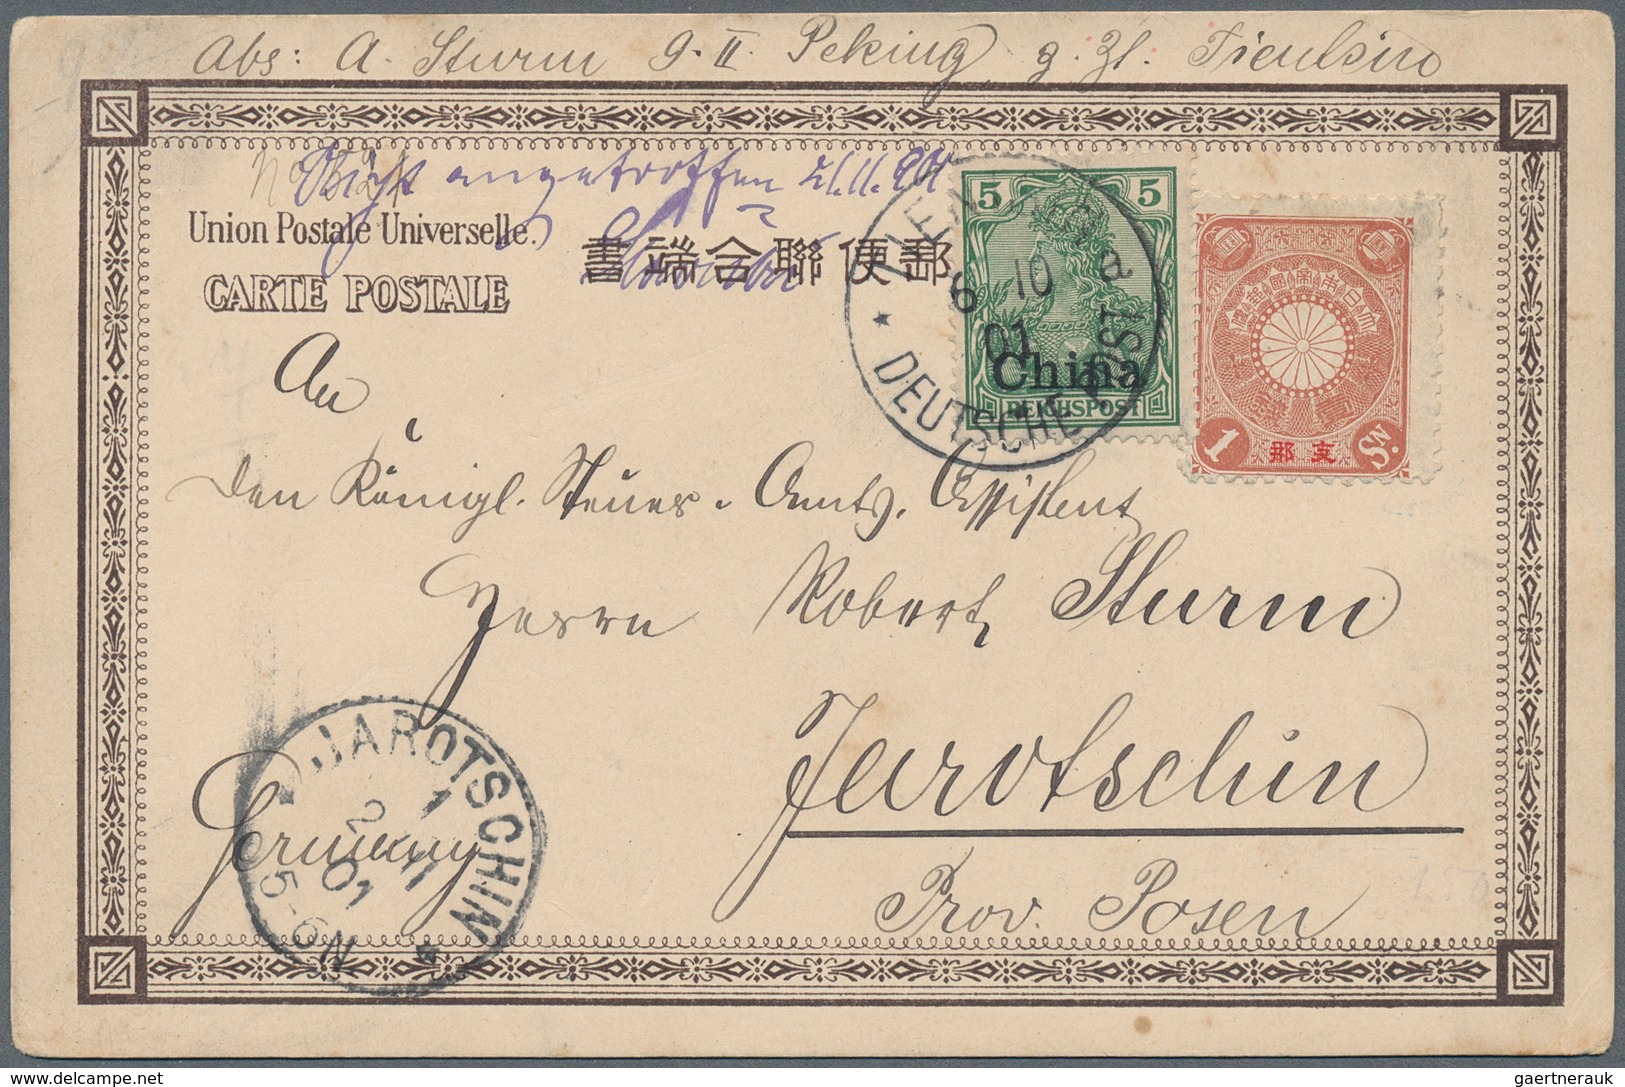 Abs: A. Sturm G. II. Peking, z. Zt. Tientsin
Nicht angetroffen 21.11.01
Union Postale Universelle.
CARTE POSTALE
書端合聯便郵
5 5
China
REICHSPOST
TIENTSIN a
6 10
01
DEUTSCHE POST
大日本帝國郵便
1 支那 Sn.
An
den Königl. Steuer-Amts. Assistent
Herrn Robert Sturm
Jarotschin
Prov. Posen
Germany
JAROTSCHIN
01
5-6N
gaertnerauk